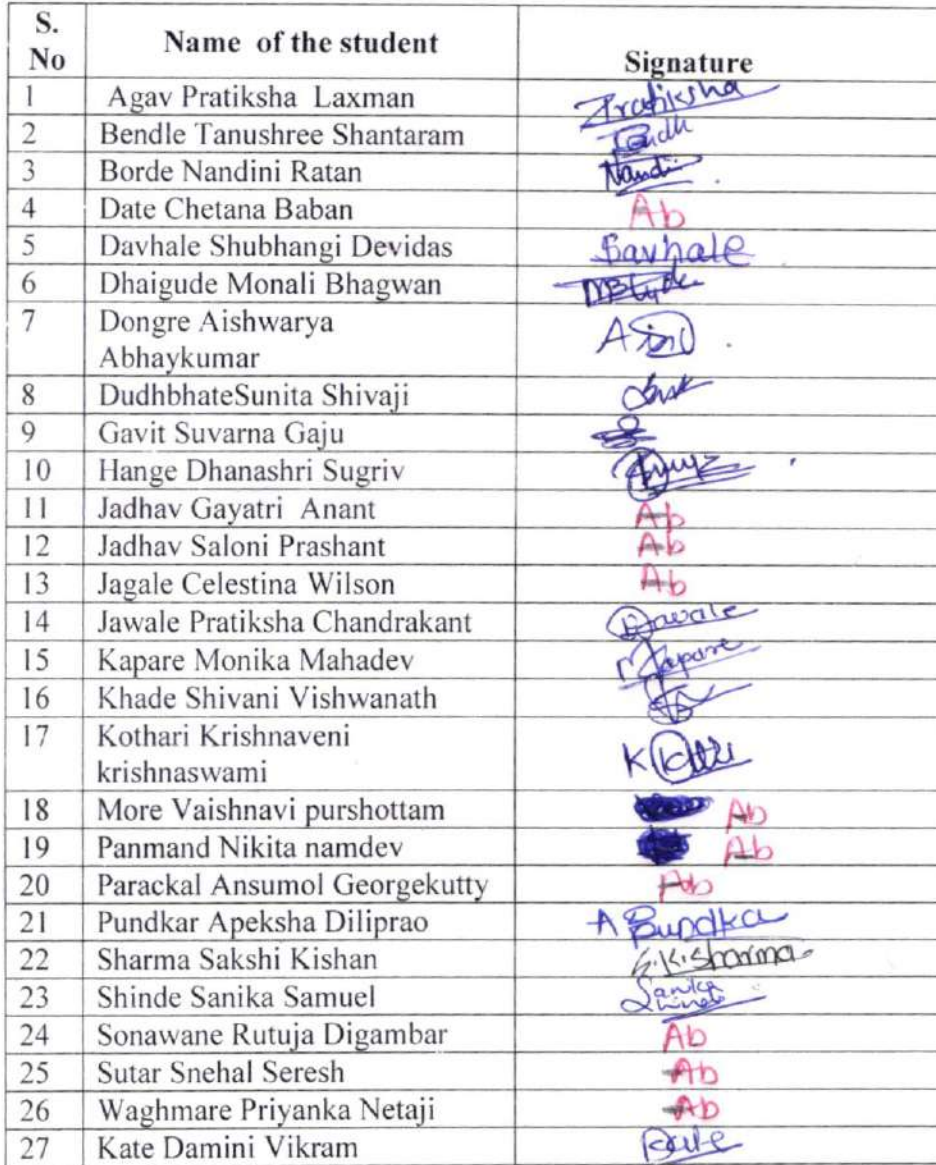 S. No Name of the student Signature
1 Agav Pratiksha Laxman Pratiksha
2 Bendle Tanushree Shantaram
3 Borde Nandini Ratan Nandi
4 Date Chetana Baban Ab
5 Davhale Shubhangi Devidas Davhale
6 Dhaigude Monali Bhagwan
7 Dongre Aishwarya
Abhaykumar
8 DudhbhateSunita Shivaji
9 Gavit Suvarna Gaju
10 Hange Dhanashri Sugriv
11 Jadhav Gayatri Anant Ab
12 Jadhav Saloni Prashant Ab
13 Jagale Celestina Wilson Ab
14 Jawale Pratiksha Chandrakant
15 Kapare Monika Mahadev MKapare
16 Khade Shivani Vishwanath
17 Kothari Krishnaveni
krishnaswami
18 More Vaishnavi purshottam Ab
19 Panmand Nikita namdev Ab
20 Parackal Ansumol Georgekutty Ab
21 Pundkar Apeksha Diliprao A Pundkar
22 Sharma Sakshi Kishan S.K.Sharma
23 Shinde Sanika Samuel Sanika
Shinde
24 Sonawane Rutuja Digambar Ab
25 Sutar Snehal Seresh Ab
26 Waghmare Priyanka Netaji Ab
27 Kate Damini Vikram